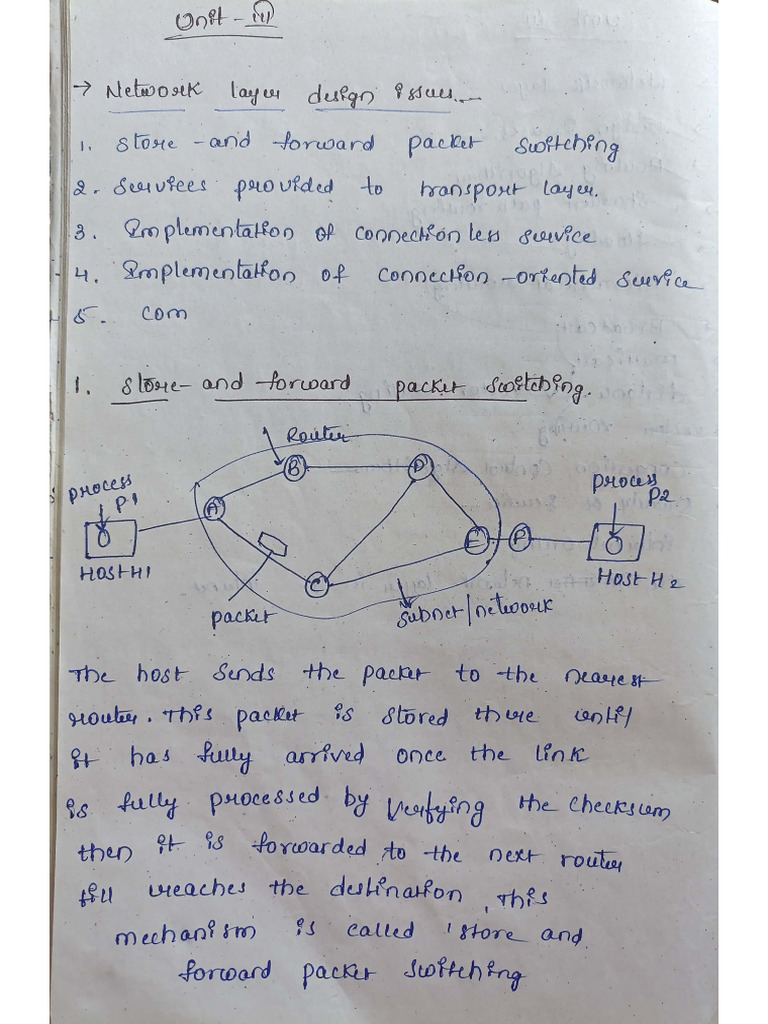 Unit - III
→ Network layer design issues.-
1. Store -and forward packet switching
2. Services provided to transport layer.
3. Implementation of connectionless service
4. Implementation of connection -oriented service
5. com
1. Store- and forward packet switching.
Router
B
D
process
P1
A
process
P2
E
F
HOST H1
C
HOST H2
packet
subnet/network
The host sends the packet to the nearest
router. This packet is stored there until
it has fully arrived once the link
is fully processed by verifying the checksum
then it is forwarded to the next router
till reaches the destination, This
mechanism is called 'store and
forward packet switching